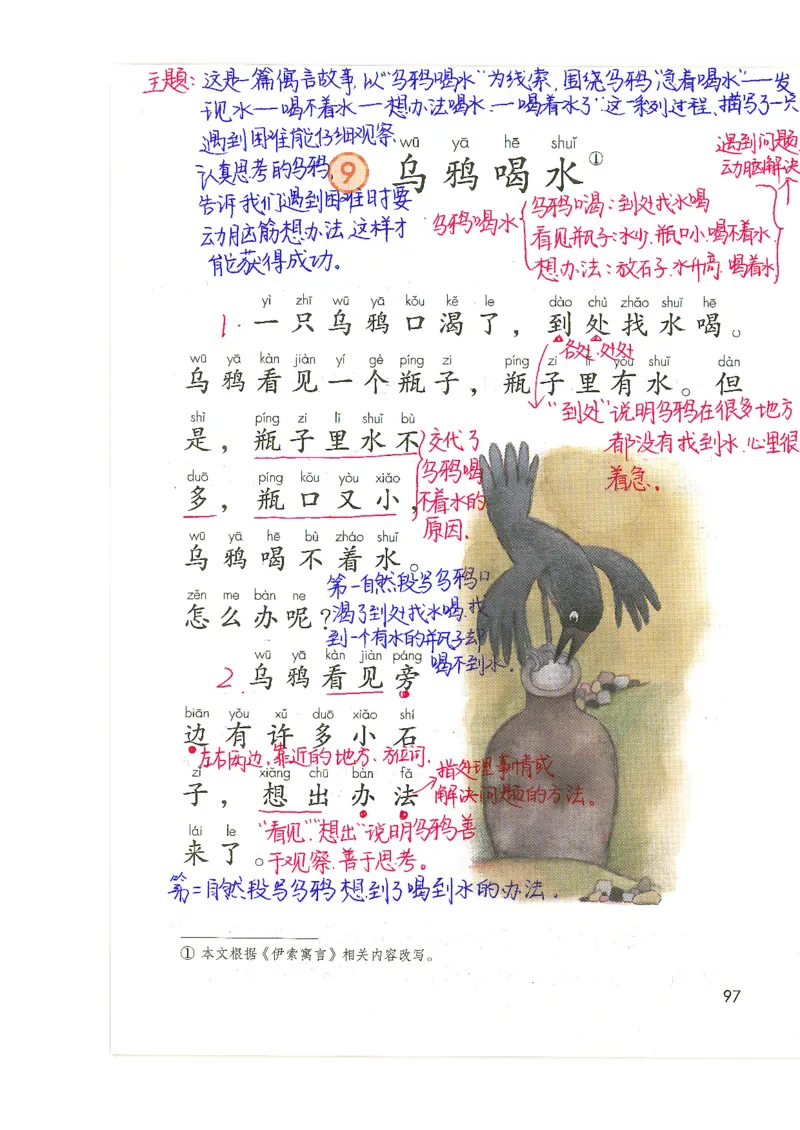 主题：这是一篇寓言故事,以“乌鸦喝水”为线索,围绕乌鸦“急着喝水——发
现水—喝不着水—想办法喝水—喝着水了”这一系列过程、描写了一只
遇到困难能仔细观察、
认真思考的乌鸦,
告诉我们遇到困难时要
动脑筋想办法,这样才
能获得成功。
wū yā hē shuǐ
9 乌鸦喝水①
遇到问题
动脑解决
乌鸦喝水
乌鸦口渴：到处找水喝
看见瓶子：水少、瓶口小、喝不着水
想办法：放石子、水升高、喝着水
yì zhī wū yā kǒu kě le dào chù zhǎo shuǐ hē
1. 一只乌鸦口渴了，到处找水喝。
各处、处处
wū yā kàn jiàn yí gè píng zi píng zi lǐ yǒu shuǐ dàn
乌鸦看见一个瓶子，瓶子里有水。但
“到处”说明乌鸦在很多地方
都没有找到水,心里很
着急。
shì píng zi lǐ shuǐ bù
是，瓶子里水不
duō píng kǒu yòu xiǎo
多，瓶口又小，
交代了
乌鸦喝
不着水的
原因.
wū yā hē bù zháo shuǐ
乌鸦喝不着水。
zěn me bàn ne
怎么办呢？
第一自然段写乌鸦口
渴了到处找水喝,找
到一个有水的瓶子却
喝不到水.
wū yā kàn jiàn páng
2. 乌鸦看见旁
biān yǒu xǔ duō xiǎo shí
边有许多小石
左右两边,靠近的地方、方位词.
zǐ xiǎng chū bàn fǎ
子，想出办法
指处理事情或
解决问题的方法。
lái le
来了。
“看见”“想出”说明乌鸦善
于观察、善于思考。
第二自然段写乌鸦想到了喝到水的办法.
① 本文根据《伊索寓言》相关内容改写。
97